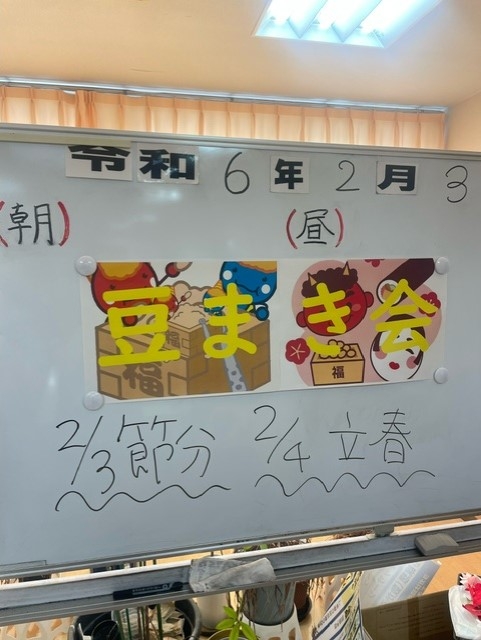 令和6年2月3
(朝) (昼)
豆まき会
福 福
2/3節分 2/4 立春